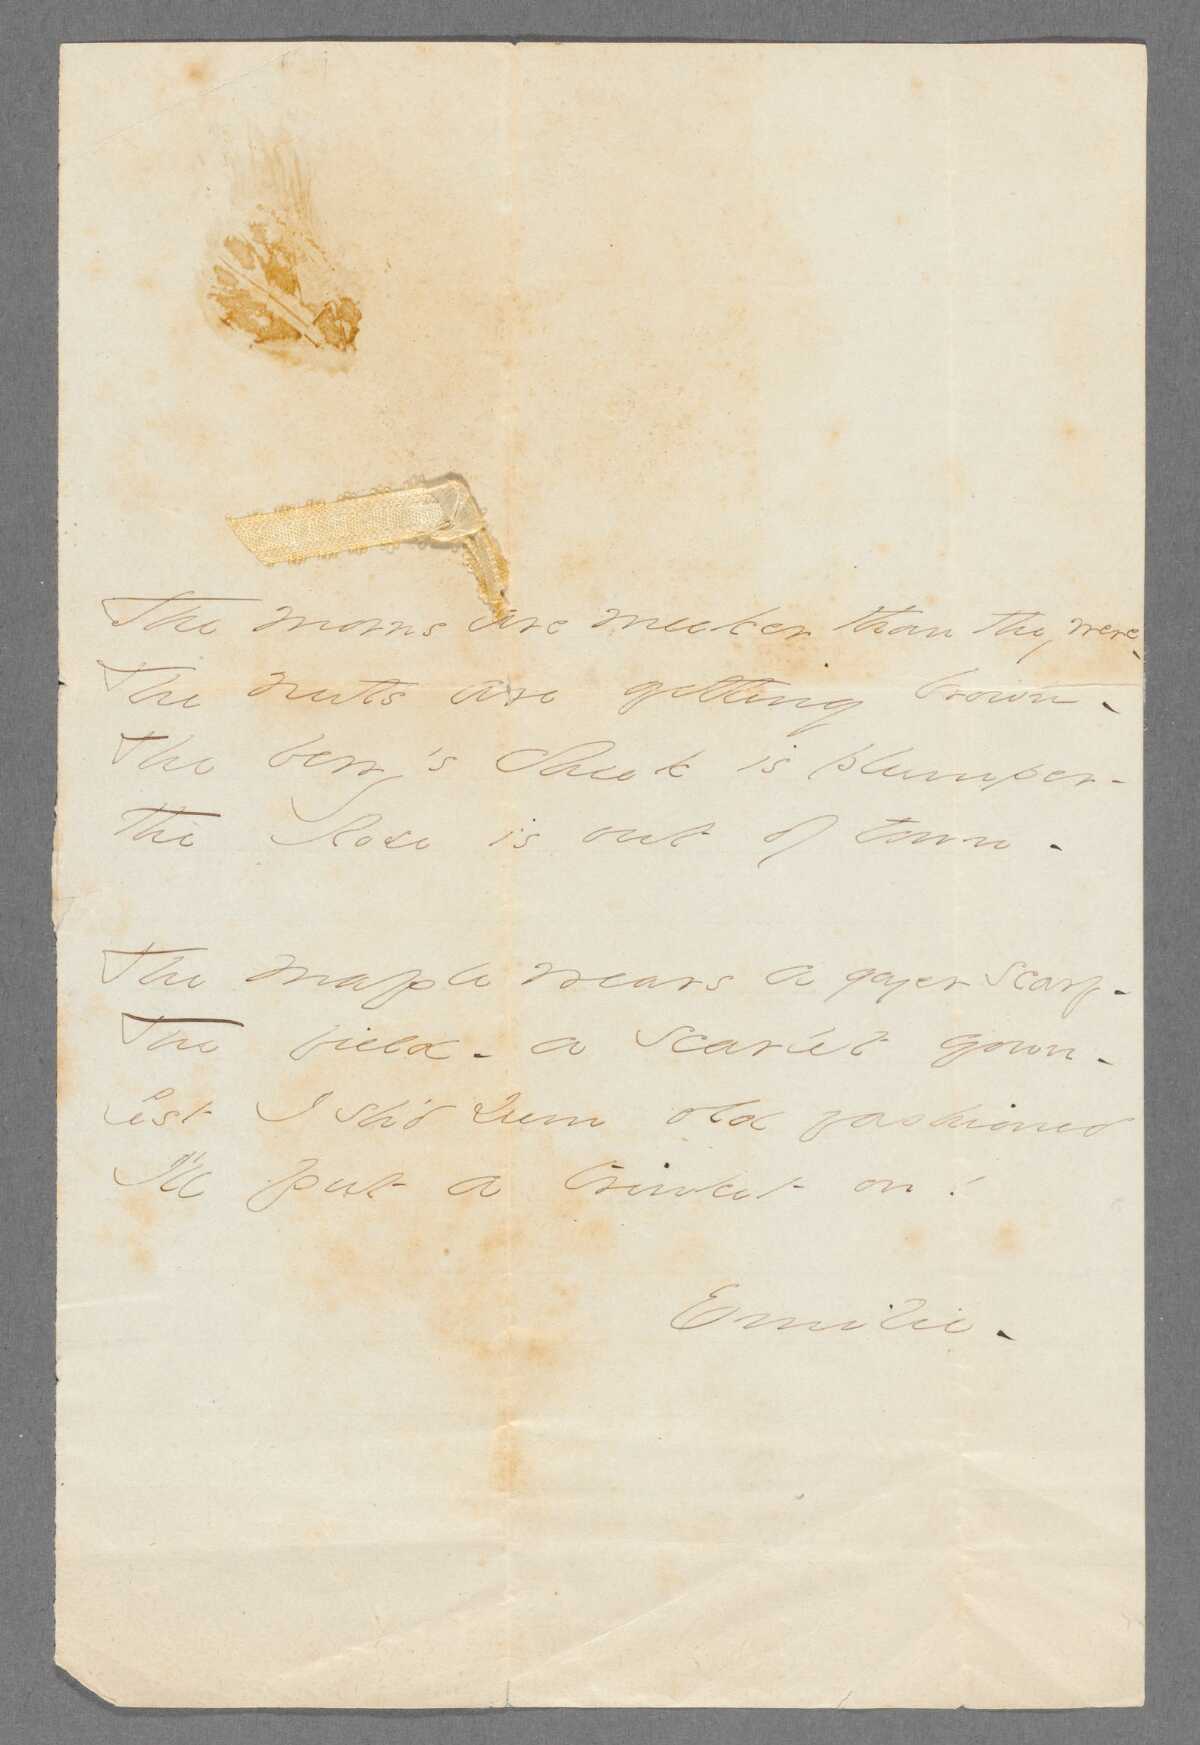 The morns are meeker than they were -
The nuts are getting brown -
The berry's cheek is plumper -
The Rose is out of town -
The maple wears a gayer scarf -
The field - a scarlet gown -
Lest I sh'd seem old fashioned
I'll put a trinket on!
Emilie -